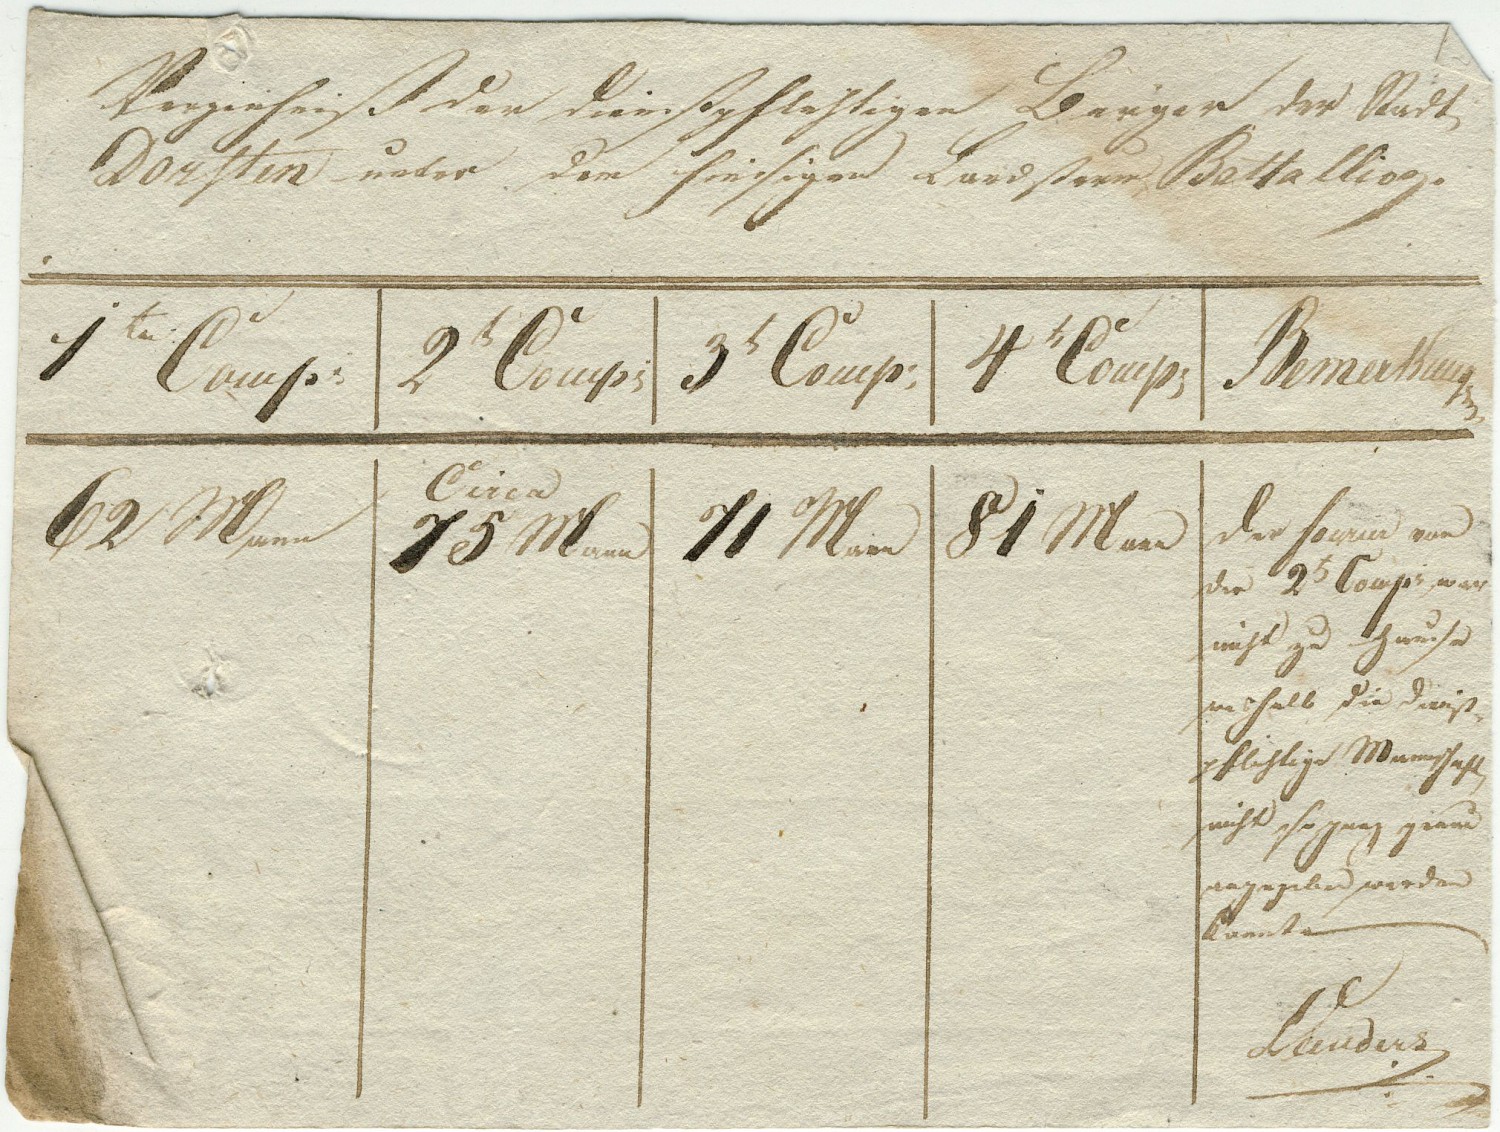 Verzeichniß der dienstpflichtigen Bürger der Stadt
Dorsten unter dem hiesigen Landsturm Battallion.
1te Comp: 2te Comp: 3te Comp: 4te Comp: Bemerkungen
62 Mann Circa 75 Mann 71 Mann 81 Mann
der von
der 2te Comp: war
nicht zu Hause
weshalb die dienst-
pflichtige Mannschaft
nicht so ganz genau
angegeben werden
konnte
Lünders